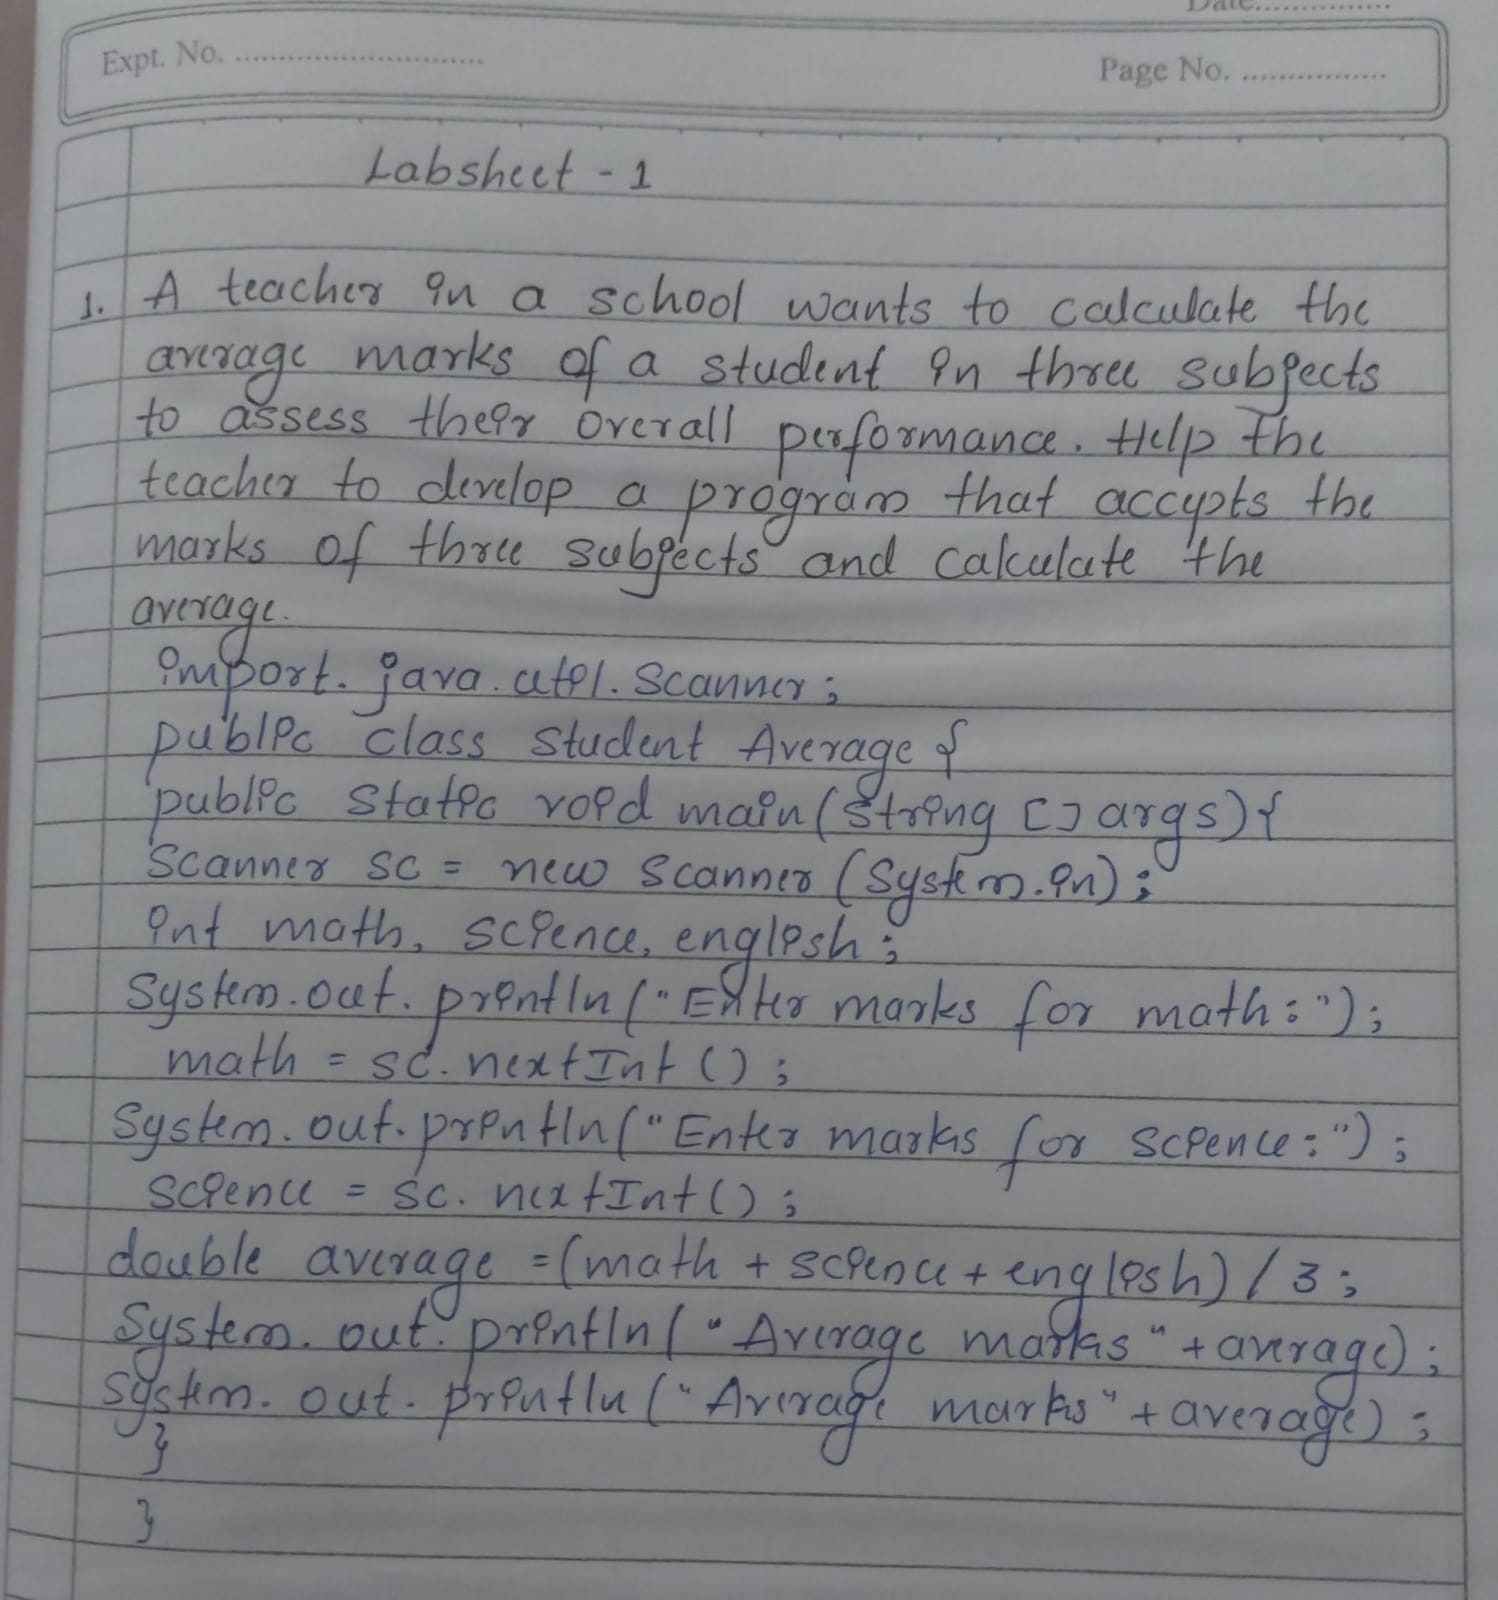 Date................
Expt. No. ............................
Page No. .................
Labsheet - 1
1. A teacher in a school wants to calculate the
average marks of a student in three subjects
to assess their overall performance. Help the
teacher to develop a program that accepts the
marks of three subjects and calculate the
average.
import. java. util. Scanner;
public class Student Average {
public static void main (String [] args) {
Scanner sc = new Scanner (System.in);
int math, science, english;
System.out. println ("Enter marks for math:");
math = sc. nextInt ();
System. out. println ("Enter marks for science:");
science = sc. nextInt ();
double average = (math + science + english) / 3;
System. out. println ("Average marks" + average);
System. out. println ("Average marks" + average);
}
}